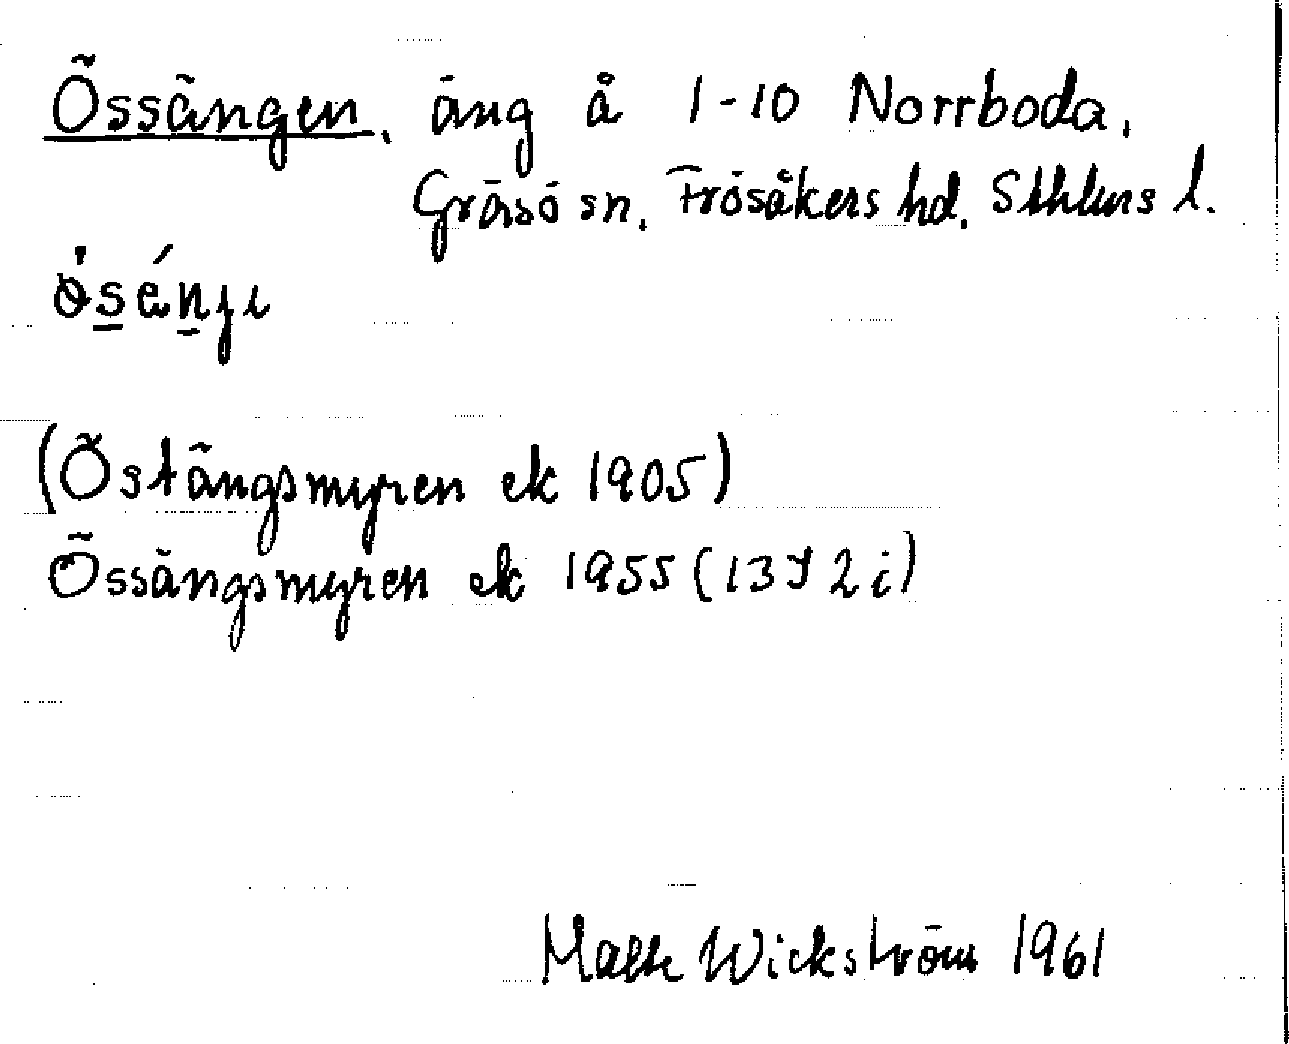 Össängen, äng å 1-10 Norrboda,
Gräsö sn, Frösåkers hd, Sthlms l.
(Östängsmyren ek 1905)
Össängsmyren ek 1955 (13I 2i)
Wickström 1961